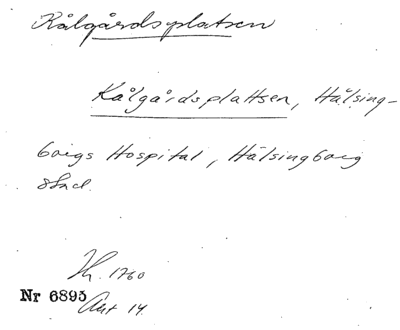 Kålgårdsplatsen
Kålgårdsplattsen, Hälsing-
borgs Hospital, Hälsingborg
stad.
1760
Nr 6895 Akt 14.